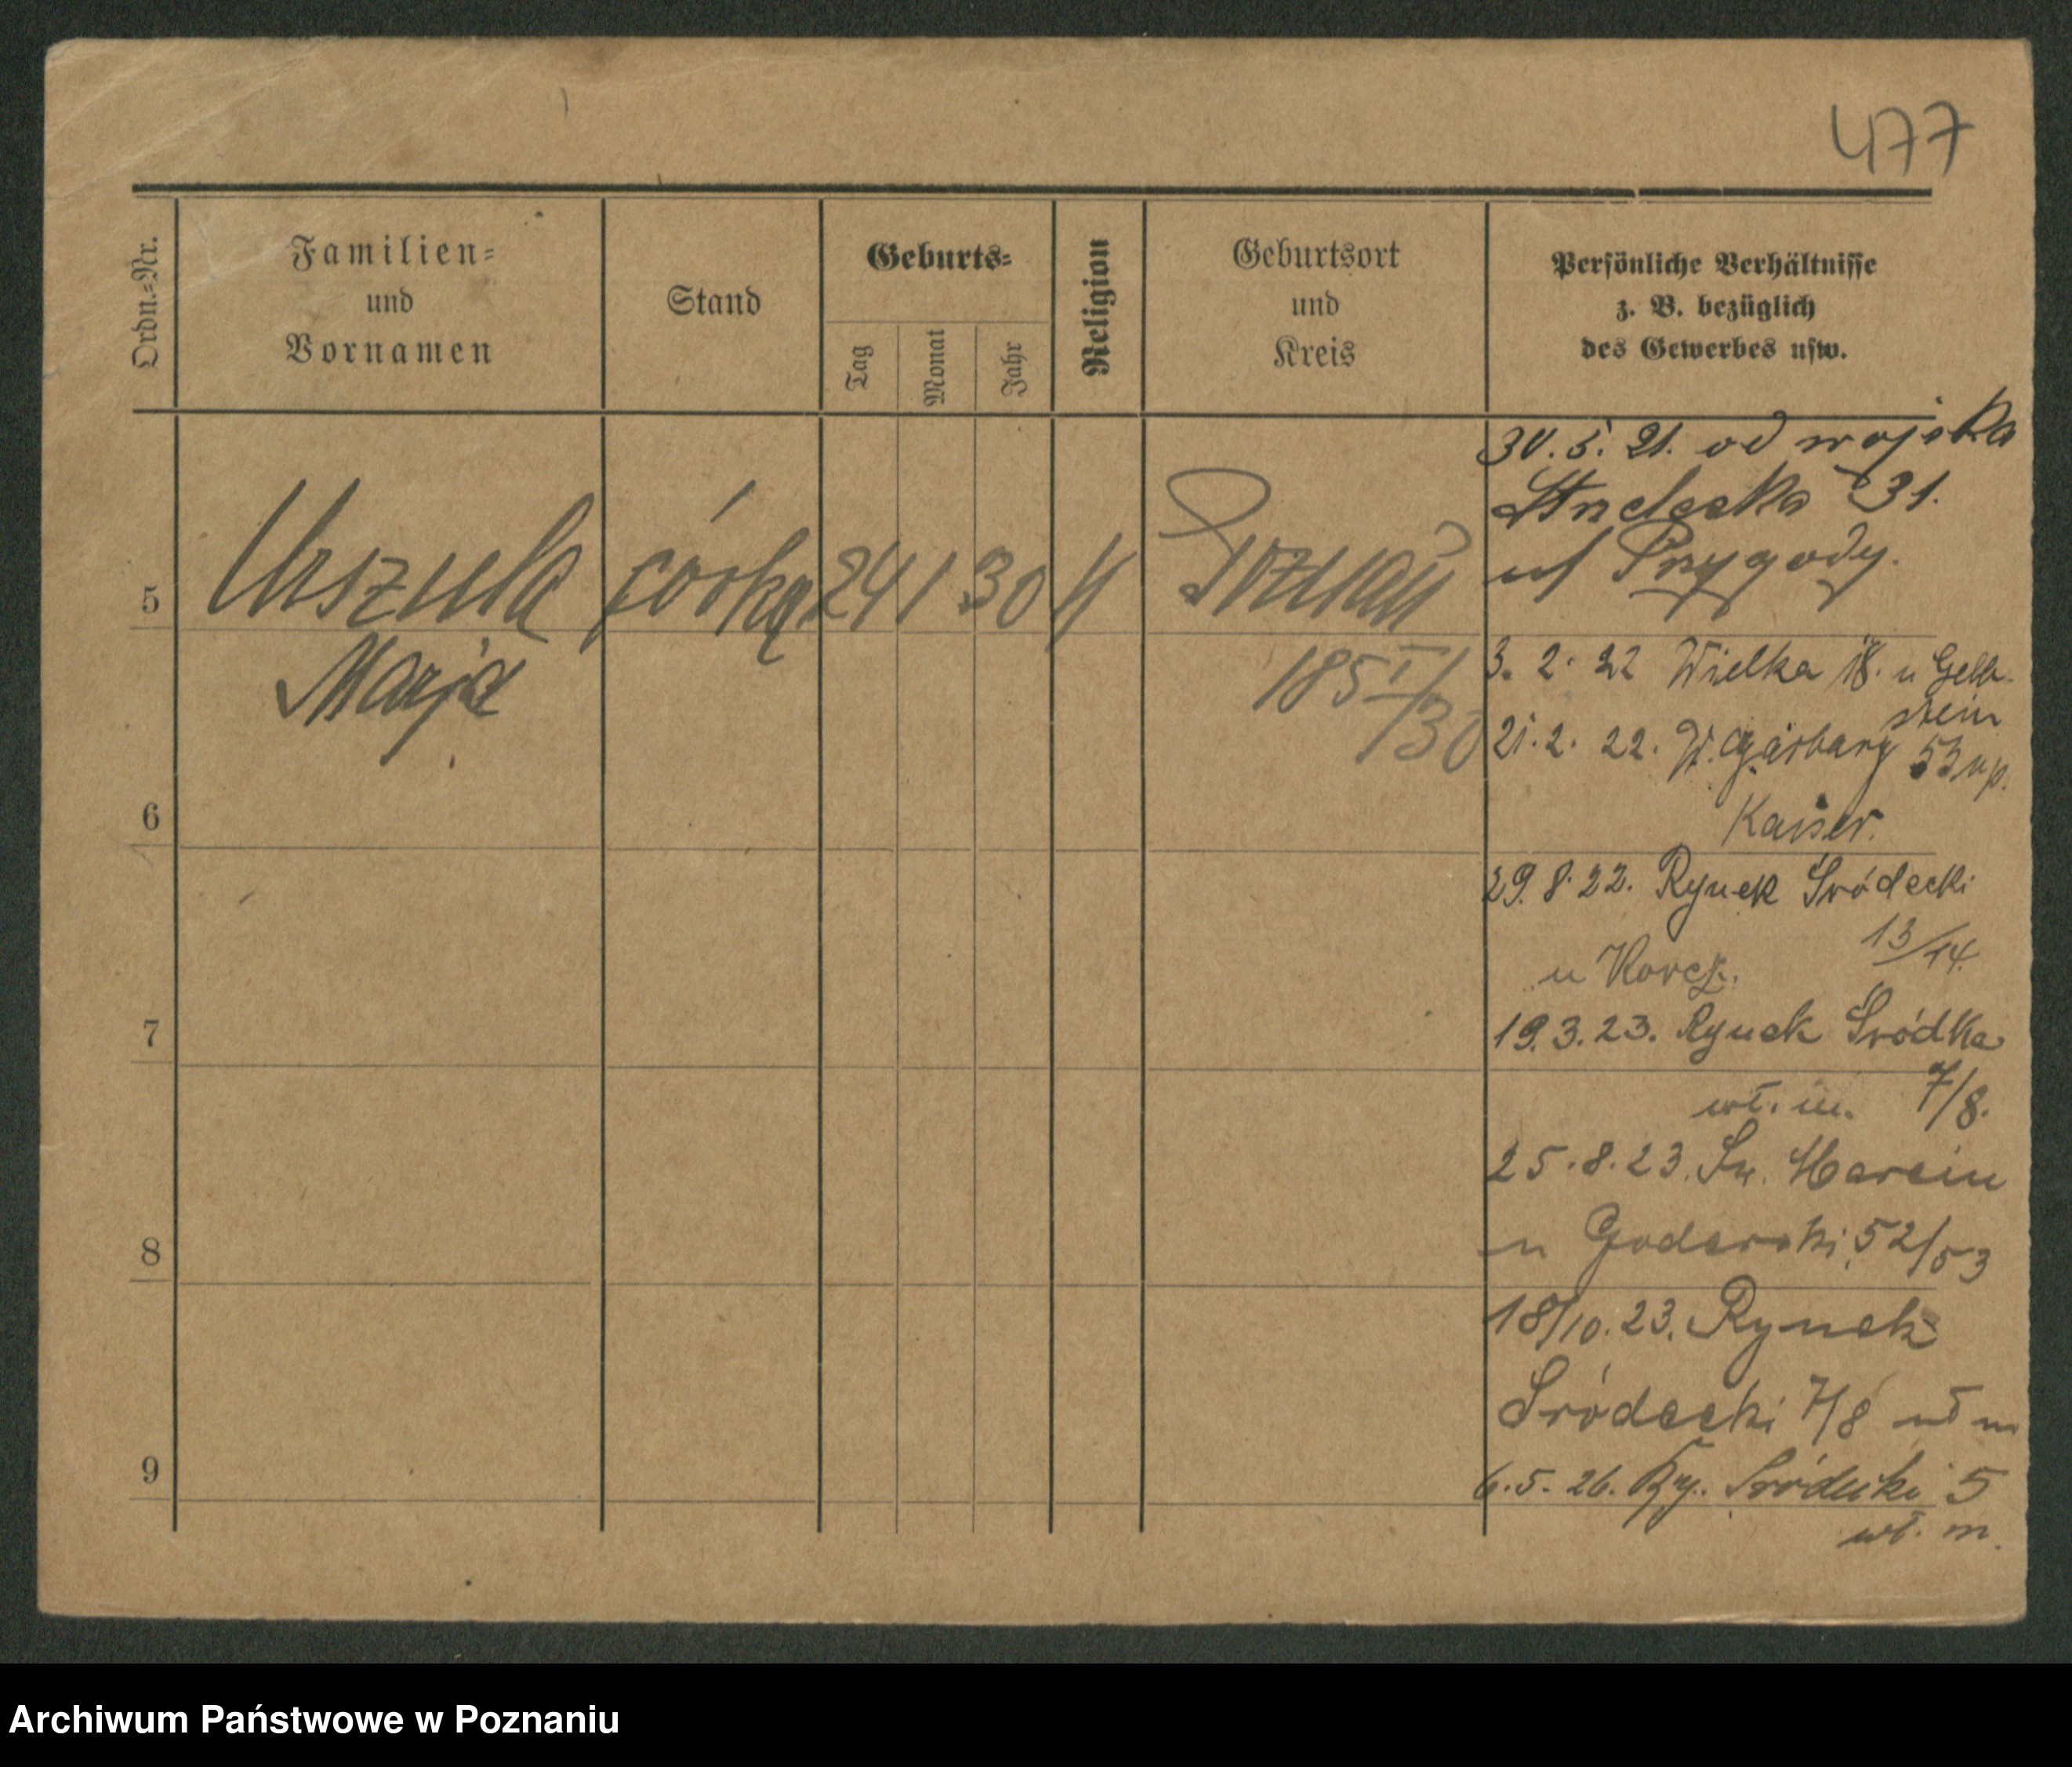 477
Ordn.-Nr.
Familien-
und
Vornamen
Stand
Geburts-
Tag
Monat
Jahr
Religion
Geburtsort
und
Kreis
Persönliche Verhältnisse
z. B. bezüglich
des Gewerbes usw.
30. 5. 21. od wojska
Strzelecka 31.
Przygody.
5 Urszula córka 24 1 30 Poznań
Marja
185 I/30
3. 2. 22 Wielka 18. u Gelb-
stein
21. 2. 22. W. Garbary 53 u p.
Kaiser.
6
29. 8. 22. Rynek Śródecki
13/14.
u Korcz.
19. 3. 23. Rynek Śródka
7
7/8.
wł. m.
25. 8. 23. Św. Marcin
u 52/53
8
18/10. 23. Rynek
Śródecki 7/8 wł m
9
6. 5. 26. Ry. Śródecki 5
wł. m.
Archiwum Państwowe w Poznaniu